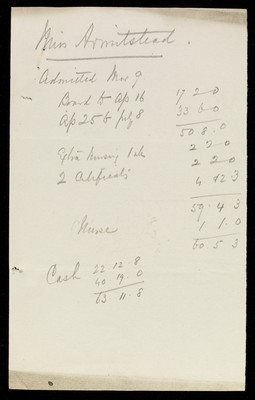 Miss Armitstead.
Admitted Mar 9
Board to Ap 16 17 2 0
Ap 25 to July 8 33 6 0
50. 8. 0
Extra Nursing 1 wk 2 2 0
2 Certificates 2 2 0
4. 12. 3
59. 4 3
Nurse 1 1. 0
60. 5 3
Cash 22. 12. 8
40. 19. 0
63. 11. 8